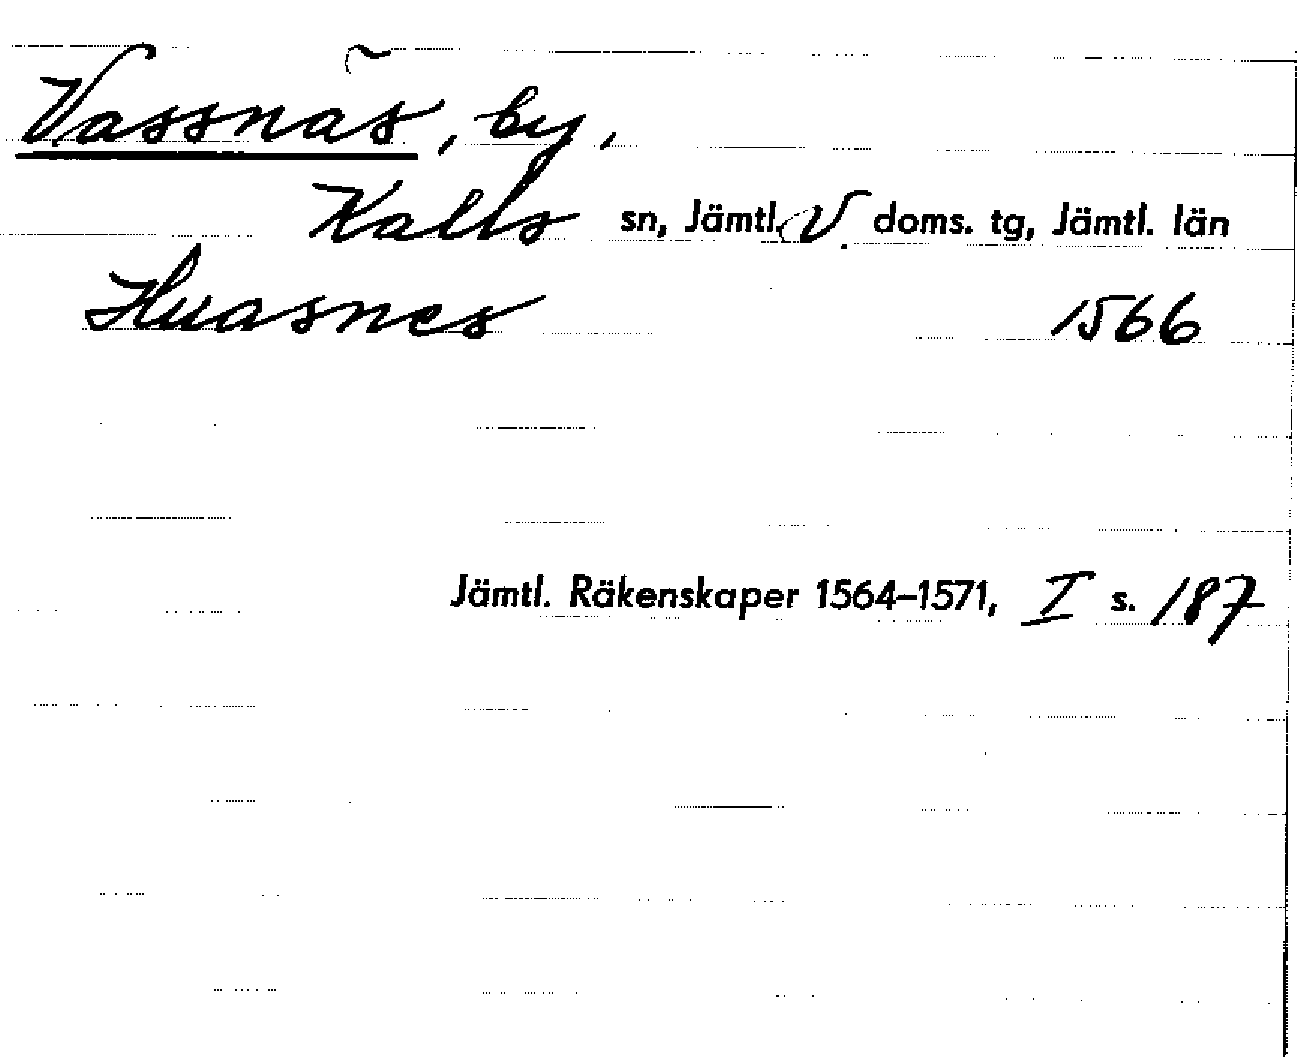 Vassnäs, by,
Kalls sn, Jämtl. V. doms. tg, Jämtl. län
Huasnes 1566
Jämtl. Räkenskaper 1564–1571, I s. 187